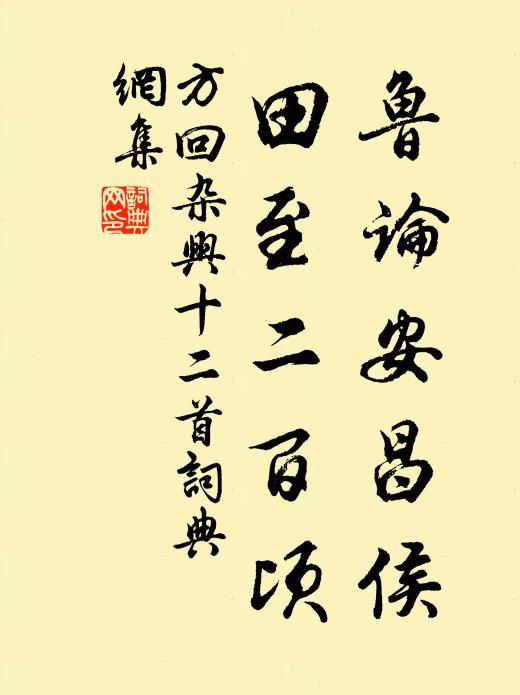 鲁论安昌侯
田至二百顷
方回杂興十二首詞典
網集
詞典
网印